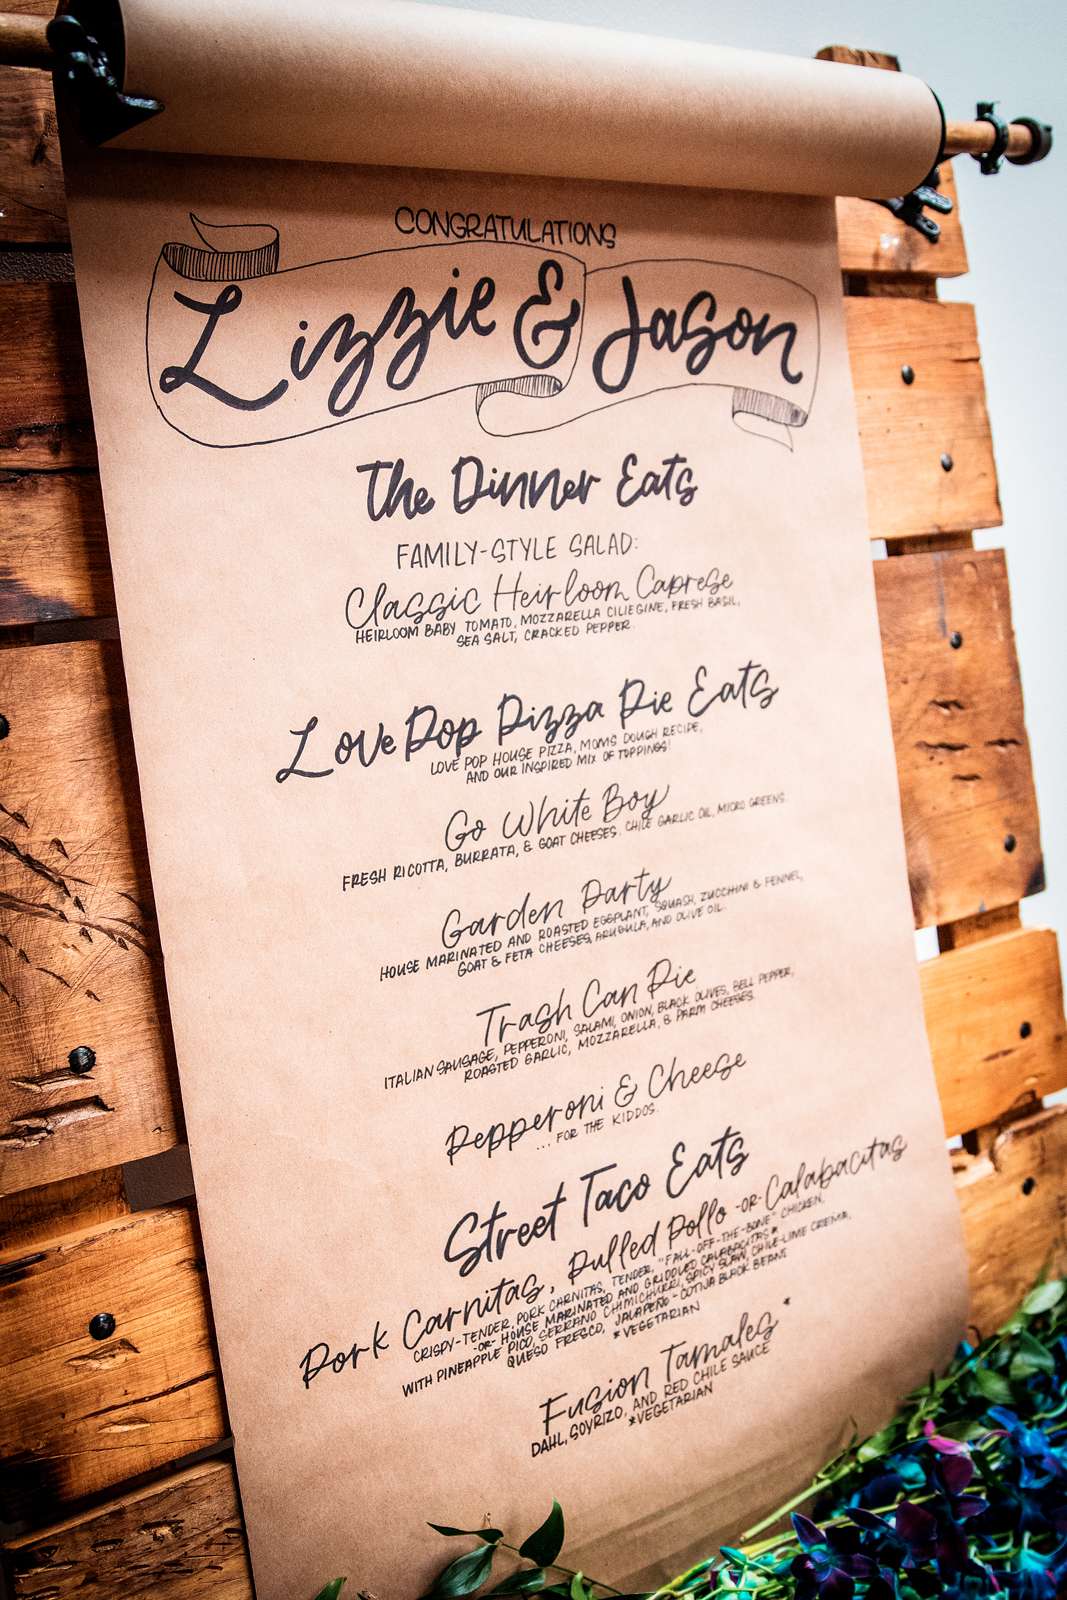 CONGRATULATIONS
Lizzie & Jason
The Dinner Eats
FAMILY-STYLE SALAD:
Classic Heirloom Caprese
HEIRLOOM BABY TOMATO, MOZZARELLA CILIEGINE, FRESH BASIL,
SEA SALT, CRACKED PEPPER.
Love Pop Pizza Pie Eats
LOVE POP HOUSE PIZZA, MOMS DOUGH RECIPE,
AND OUR INSPIRED MIX OF TOPPINGS!
Go White Boy
FRESH RICOTTA, BURRATA, & GOAT CHEESES. CHILE GARLIC OIL, MICRO GREENS.
Garden Party
HOUSE MARINATED AND ROASTED EGGPLANT, SQUASH, ZUCCHINI & FENNEL,
GOAT & FETA CHEESES, ARUGULA, AND OLIVE OIL.
Trash Can Pie
ITALIAN SAUSAGE, PEPPERONI, SALAMI, ONION, BLACK OLIVES, BELL PEPPER,
ROASTED GARLIC, MOZZARELLA, & PARM CHEESES.
Pepperoni & Cheese
... FOR THE KIDDOS.
Street Taco Eats
Pork Carnitas, Pulled Pollo -OR- Calabacitas
CRISPY-TENDER, PORK CARNITAS, TENDER, "FALL-OFF-THE-BONE" CHICKEN,
-OR- HOUSE MARINATED AND GRIDDLED CALABACITAS*
WITH PINEAPPLE PICO, SERRANO CHIMICHURRI, SPICY SLAW, CHILE-LIME CREMA,
QUESO FRESCO, JALAPEÑO - COTIJA BLACK BEANS
*VEGETARIAN
Fusion Tamales*
DAHL, SOYRIZO, AND RED CHILE SAUCE
*VEGETARIAN